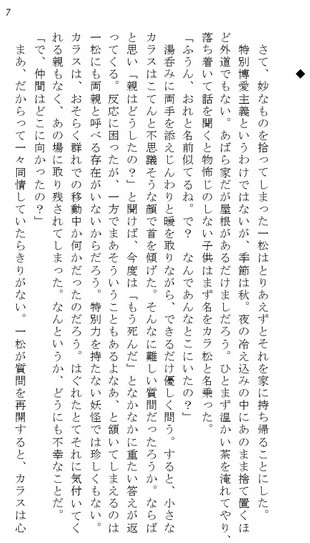 7
◆
さて、妙なものを拾ってしまった一松はとりあえずとそれを家に持ち帰ることにした。
特別博愛主義というわけではないが、季節は秋。夜の冷え込みの中にあのまま捨て置くほ
ど外道でもない。あばら家だが屋根があるだけましだろう。ひとまず温かい茶を淹れてやり、
落ち着いて話を聞くと物怖じのしない子供はまず名をカラ松と名乗った。
「ふうん、おれと名前似てるね。で？　なんであんなとこにいたの？」
湯呑みに両手を添えじんわりと暖を取りながら、できるだけ優しく問う。すると、小さな
カラスはこてんと不思議そうな顔で首を傾げた。そんなに難しい質問だったろうか。ならば
と思い「親はどうしたの？」と聞けば、今度は「もう死んだ」となかなかに重たい答えが返
ってくる。反応に困ったが、一方でまあそういうこともあるよなあ、と頷いてしまえるのは
一松にも両親と呼べる存在がいないからだろう。特別力を持たない妖怪では珍しくもない。
カラスは、おそらく群れでの移動中か何かだったのだろう。はぐれたとてそれに気付いてく
れる親もなく、あの場に取り残されてしまった。なんというか、どうにも不幸なことだ。
「で、仲間はどこに向かったの？」
まあ、だからって一々同情していたらきりがない。一松が質問を再開すると、カラスは心